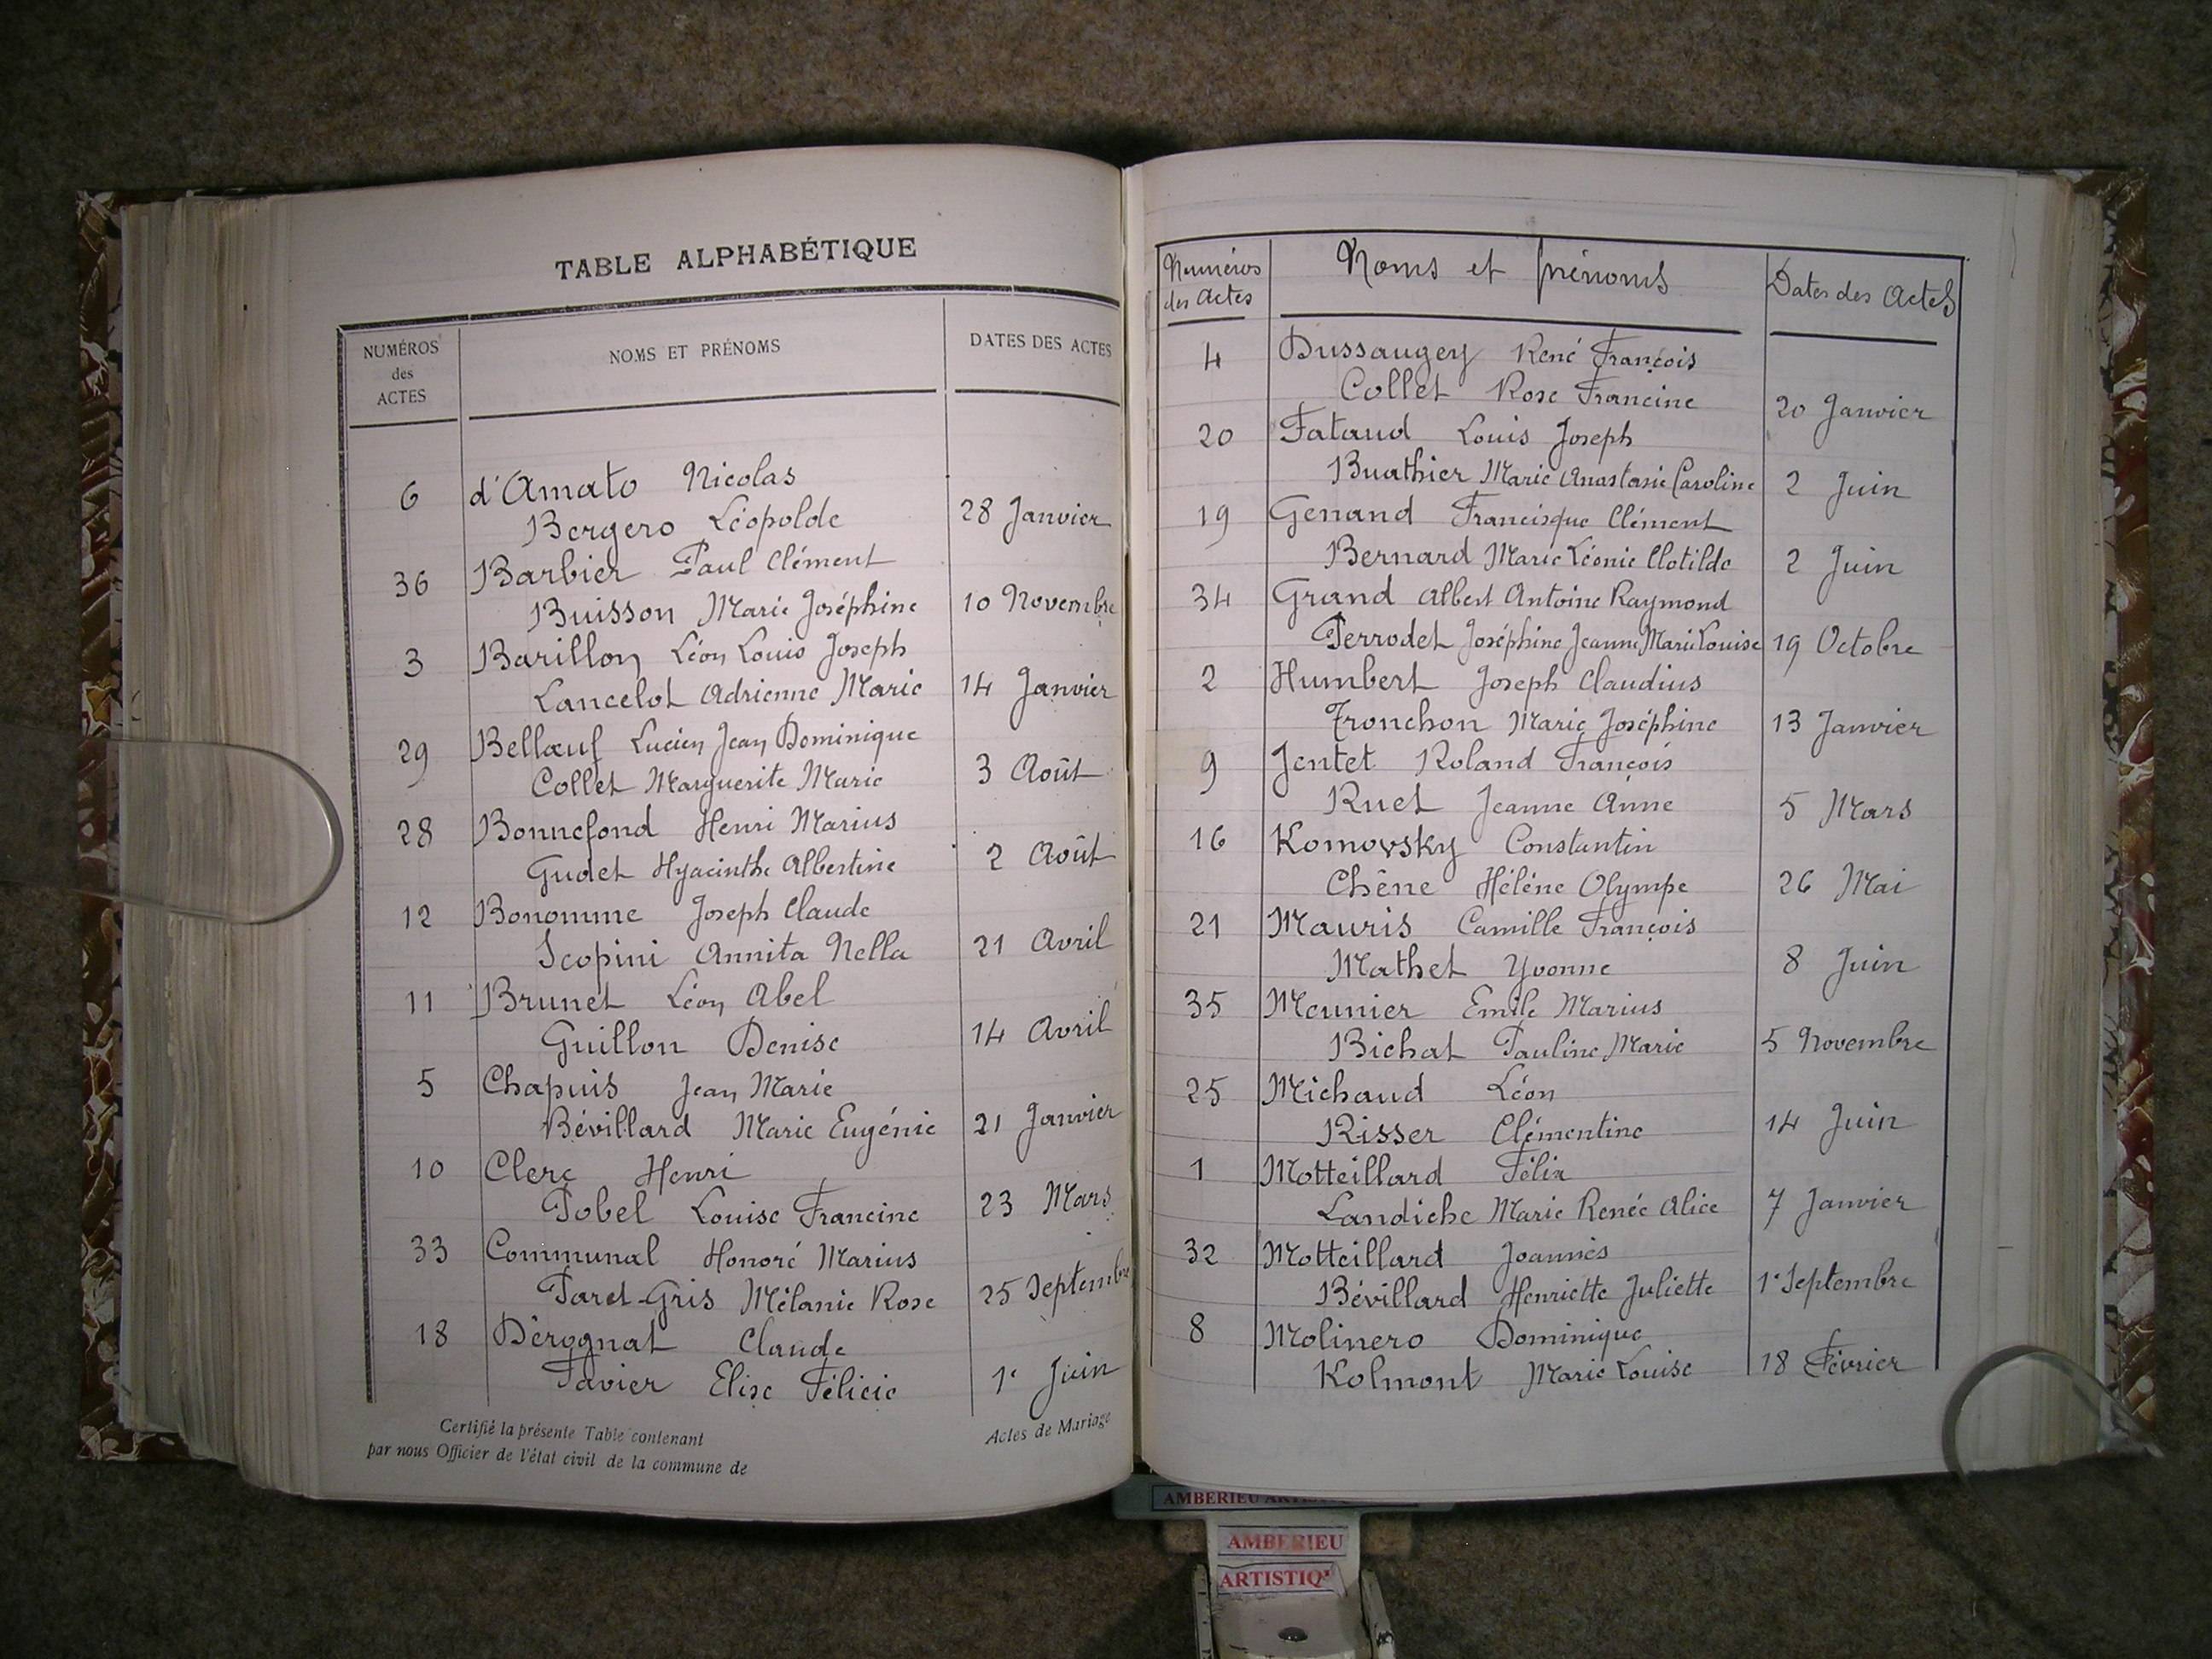 TABLE ALPHABÉTIQUE
NUMÉROS des ACTES NOMS ET PRÉNOMS DATES DES ACTES
6 d'Amato Nicolas
Bergero Léopolde 28 Janvier
36 Barbier Paul Clément
Buisson Marie Joséphine 10 Novembre
3 Barillon Léon Louis Joseph
Lancelot Adrienne Marie 14 Janvier
29 Bellœuf Lucien Jean Dominique
Collet Marguerite Marie 3 Août
28 Bonnefond Henri Marius
Gudet Hyacinthe Albertine 2 Août
12 Bonomme Joseph Claude
Scopini Annita Nella 21 Avril
11 Brunet Léon Abel
Guillon Denise 14 Avril
5 Chapuis Jean Marie
Bévillard Marie Eugénie 21 Janvier
10 Clerc Henri
Pobel Louise Francine 23 Mars
33 Communal Honoré Marius
Paret-Gris Mélanie Rose 25 Septembre
18 Dérognat Claude
Favier Elise Félicie 1er Juin
Certifié la présente Table contenant Actes de Mariage
par nous Officier de l'état civil de la commune de
Numéros des Actes Noms et prénoms Dates des Actes
4 Dussaugey René François
Collet Rose Francine 20 Janvier
20 Fataud Louis Joseph
Buathier Marie Anastasie Caroline 2 Juin
19 Genand Francisque Clément
Bernard Marie Léonie Clotilde 2 Juin
34 Grand Albert Antoine Raymond
Perrodet Joséphine Jeanne Marie Louise 19 Octobre
2 Humbert Joseph Claudius
Tronchon Marie Joséphine 13 Janvier
9 Jentet Roland François
Ruet Jeanne Anne 5 Mars
16 Komovsky Constantin
Chêne Hélène Olympe 26 Mai
21 Mauris Camille François
Mathet Yvonne 8 Juin
35 Meunier Emile Marius
Bichat Pauline Marie 5 Novembre
25 Michaud Léon
Risser Clémentine 14 Juin
1 Motteillard Félix
Landiche Marie Renée Alice 7 Janvier
32 Motteillard Joannès
Bévillard Henriette Juliette 1er Septembre
8 Molinero Dominique
Kolmont Marie Louise 18 Février
AMBERIEU
AMBERIEU
ARTISTIQ